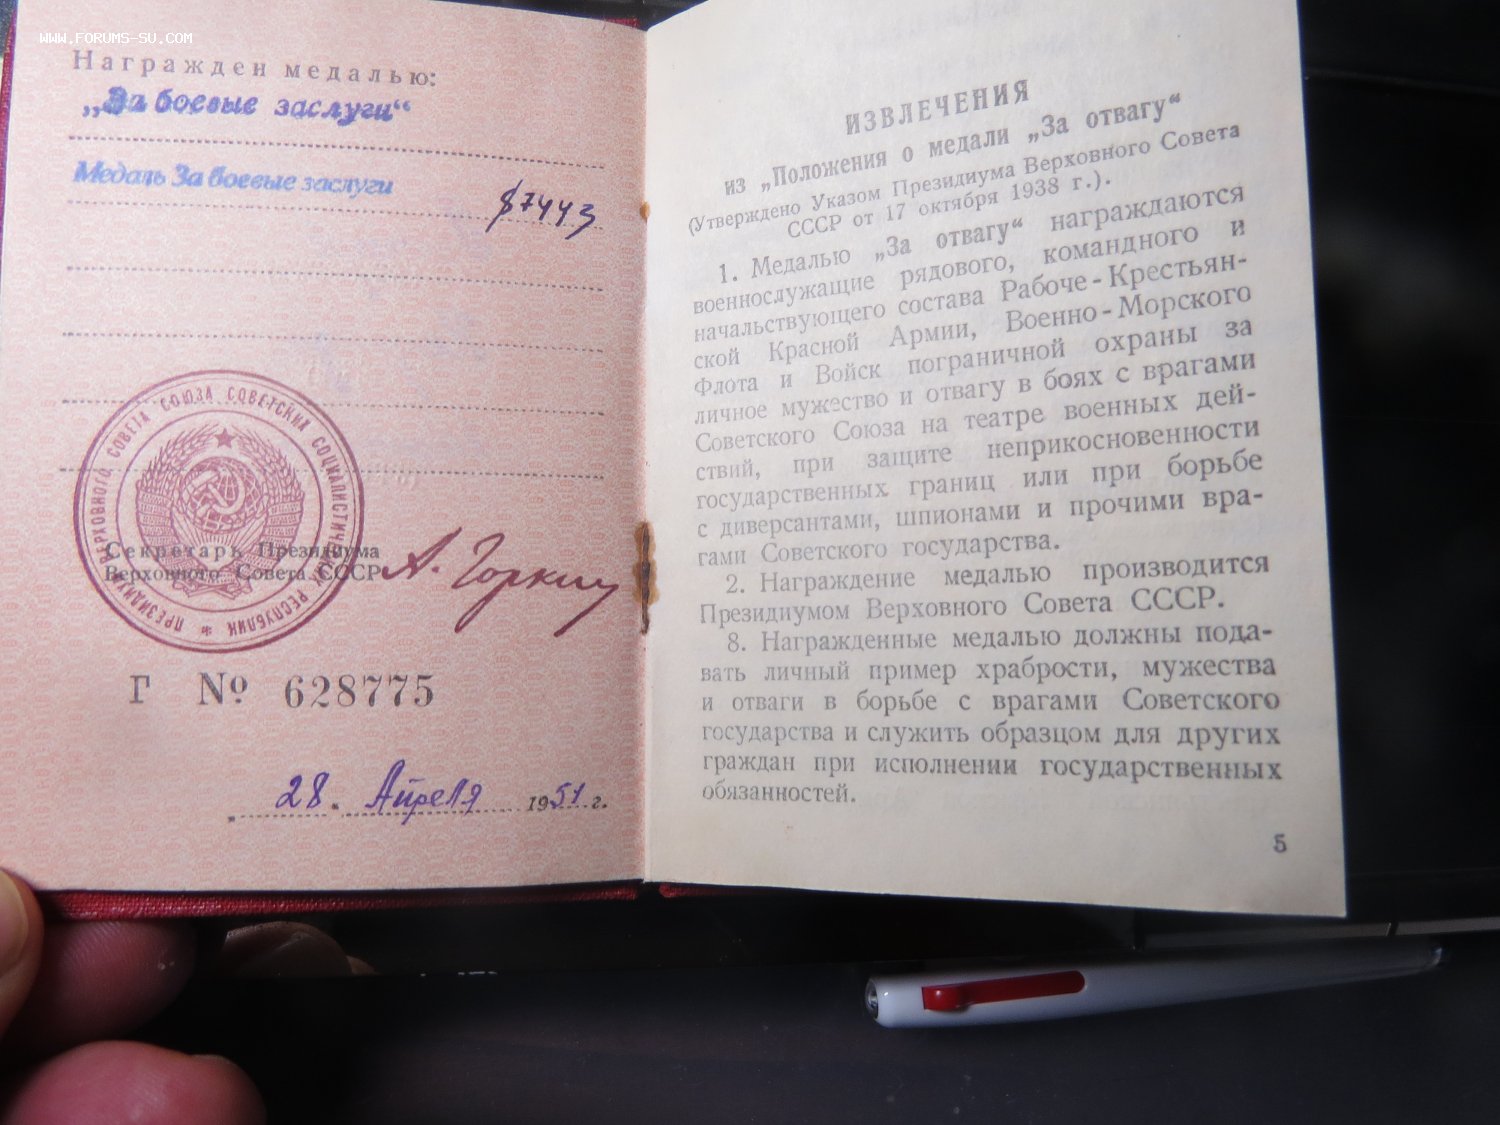 WWW.FORUMS-SU.COM
Награжден медалью:
„За боевые заслуги“
Медаль За боевые заслуги
87443
ПРЕЗИДИУМ ВЕРХОВНОГО СОВЕТА СОЮЗА СОВЕТСКИХ СОЦИАЛИСТИЧЕСКИХ РЕСПУБЛИК *
Секретарь Президиума
Верховного Совета СССР
А. Горкин
Г № 628775
28. Апреля 1951 г.
ИЗВЛЕЧЕНИЯ
из „Положения о медали „За отвагу“
(Утверждено Указом Президиума Верховного Совета
СССР от 17 октября 1938 г.).
1. Медалью „За отвагу“ награждаются
военнослужащие рядового, командного и
начальствующего состава Рабоче-Крестьян-
ской Красной Армии, Военно-Морского
Флота и Войск пограничной охраны за
личное мужество и отвагу в боях с врагами
Советского Союза на театре военных дей-
ствий, при защите неприкосновенности
государственных границ или при борьбе
с диверсантами, шпионами и прочими вра-
гами Советского государства.
2. Награждение медалью производится
Президиумом Верховного Совета СССР.
8. Награжденные медалью должны пода-
вать личный пример храбрости, мужества
и отваги в борьбе с врагами Советского
государства и служить образцом для других
граждан при исполнении государственных
обязанностей.
5